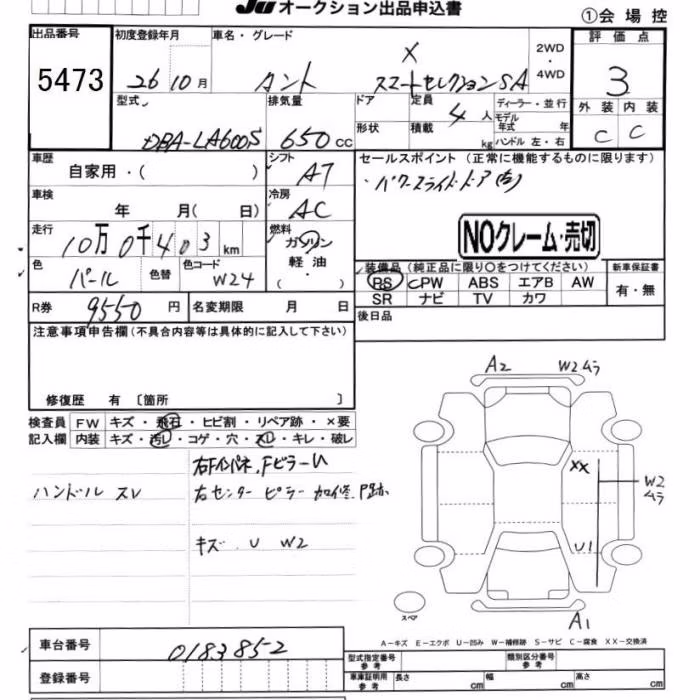 JU オークション出品申込書
①会場控
出品番号 初度登録年月 車名・グレード 評価点
5473 26 10月 タント X スマートセレクションSA 2WD・4WD 3
型式 排気量 ドア 定員 ディーラー・並行 外装 内装
DBA-LA600S 650cc 4人 モデル年式 年 C C
形状 積載 kg ハンドル 左・右
車歴 シフト セールスポイント(正常に機能するものに限ります)
自家用・( ) AT ・パワースライドドア(右)
車検 冷房
年 月( 日) AC
走行 燃料 NOクレーム・売切
10万0千403km ガソリン
軽油・
( )
色 色替 色コード 装備品(純正品に限り○をつけてください) 新車保証書
パール W24 PS PW ABS エアB AW 有・無
SR ナビ TV カワ
R券 9550円 名変期限 月 日 後日品
注意事項申告欄(不具合内容等は具体的に記入して下さい)
修復歴 有〔箇所 〕
A2 W2ムラ
検査員 FW キズ・飛石・ヒビ割・リペア跡・×要
記入欄 内装 キズ・汚レ・コゲ・穴・スレ・キレ・破レ
XX
W2ムラ
ハンドル スレ
右センターピラー加修、P跡
キズ U W2
U1
スペア
A1
A−キズ E−エクボ U−凹み W−補修跡 S−サビ C−腐食 XX−交換済
車台番号 0183852
型式指定番号 参考 類別区分番号 参考
登録番号
車庫証明用 参考 長さ cm 幅 cm 高さ cm